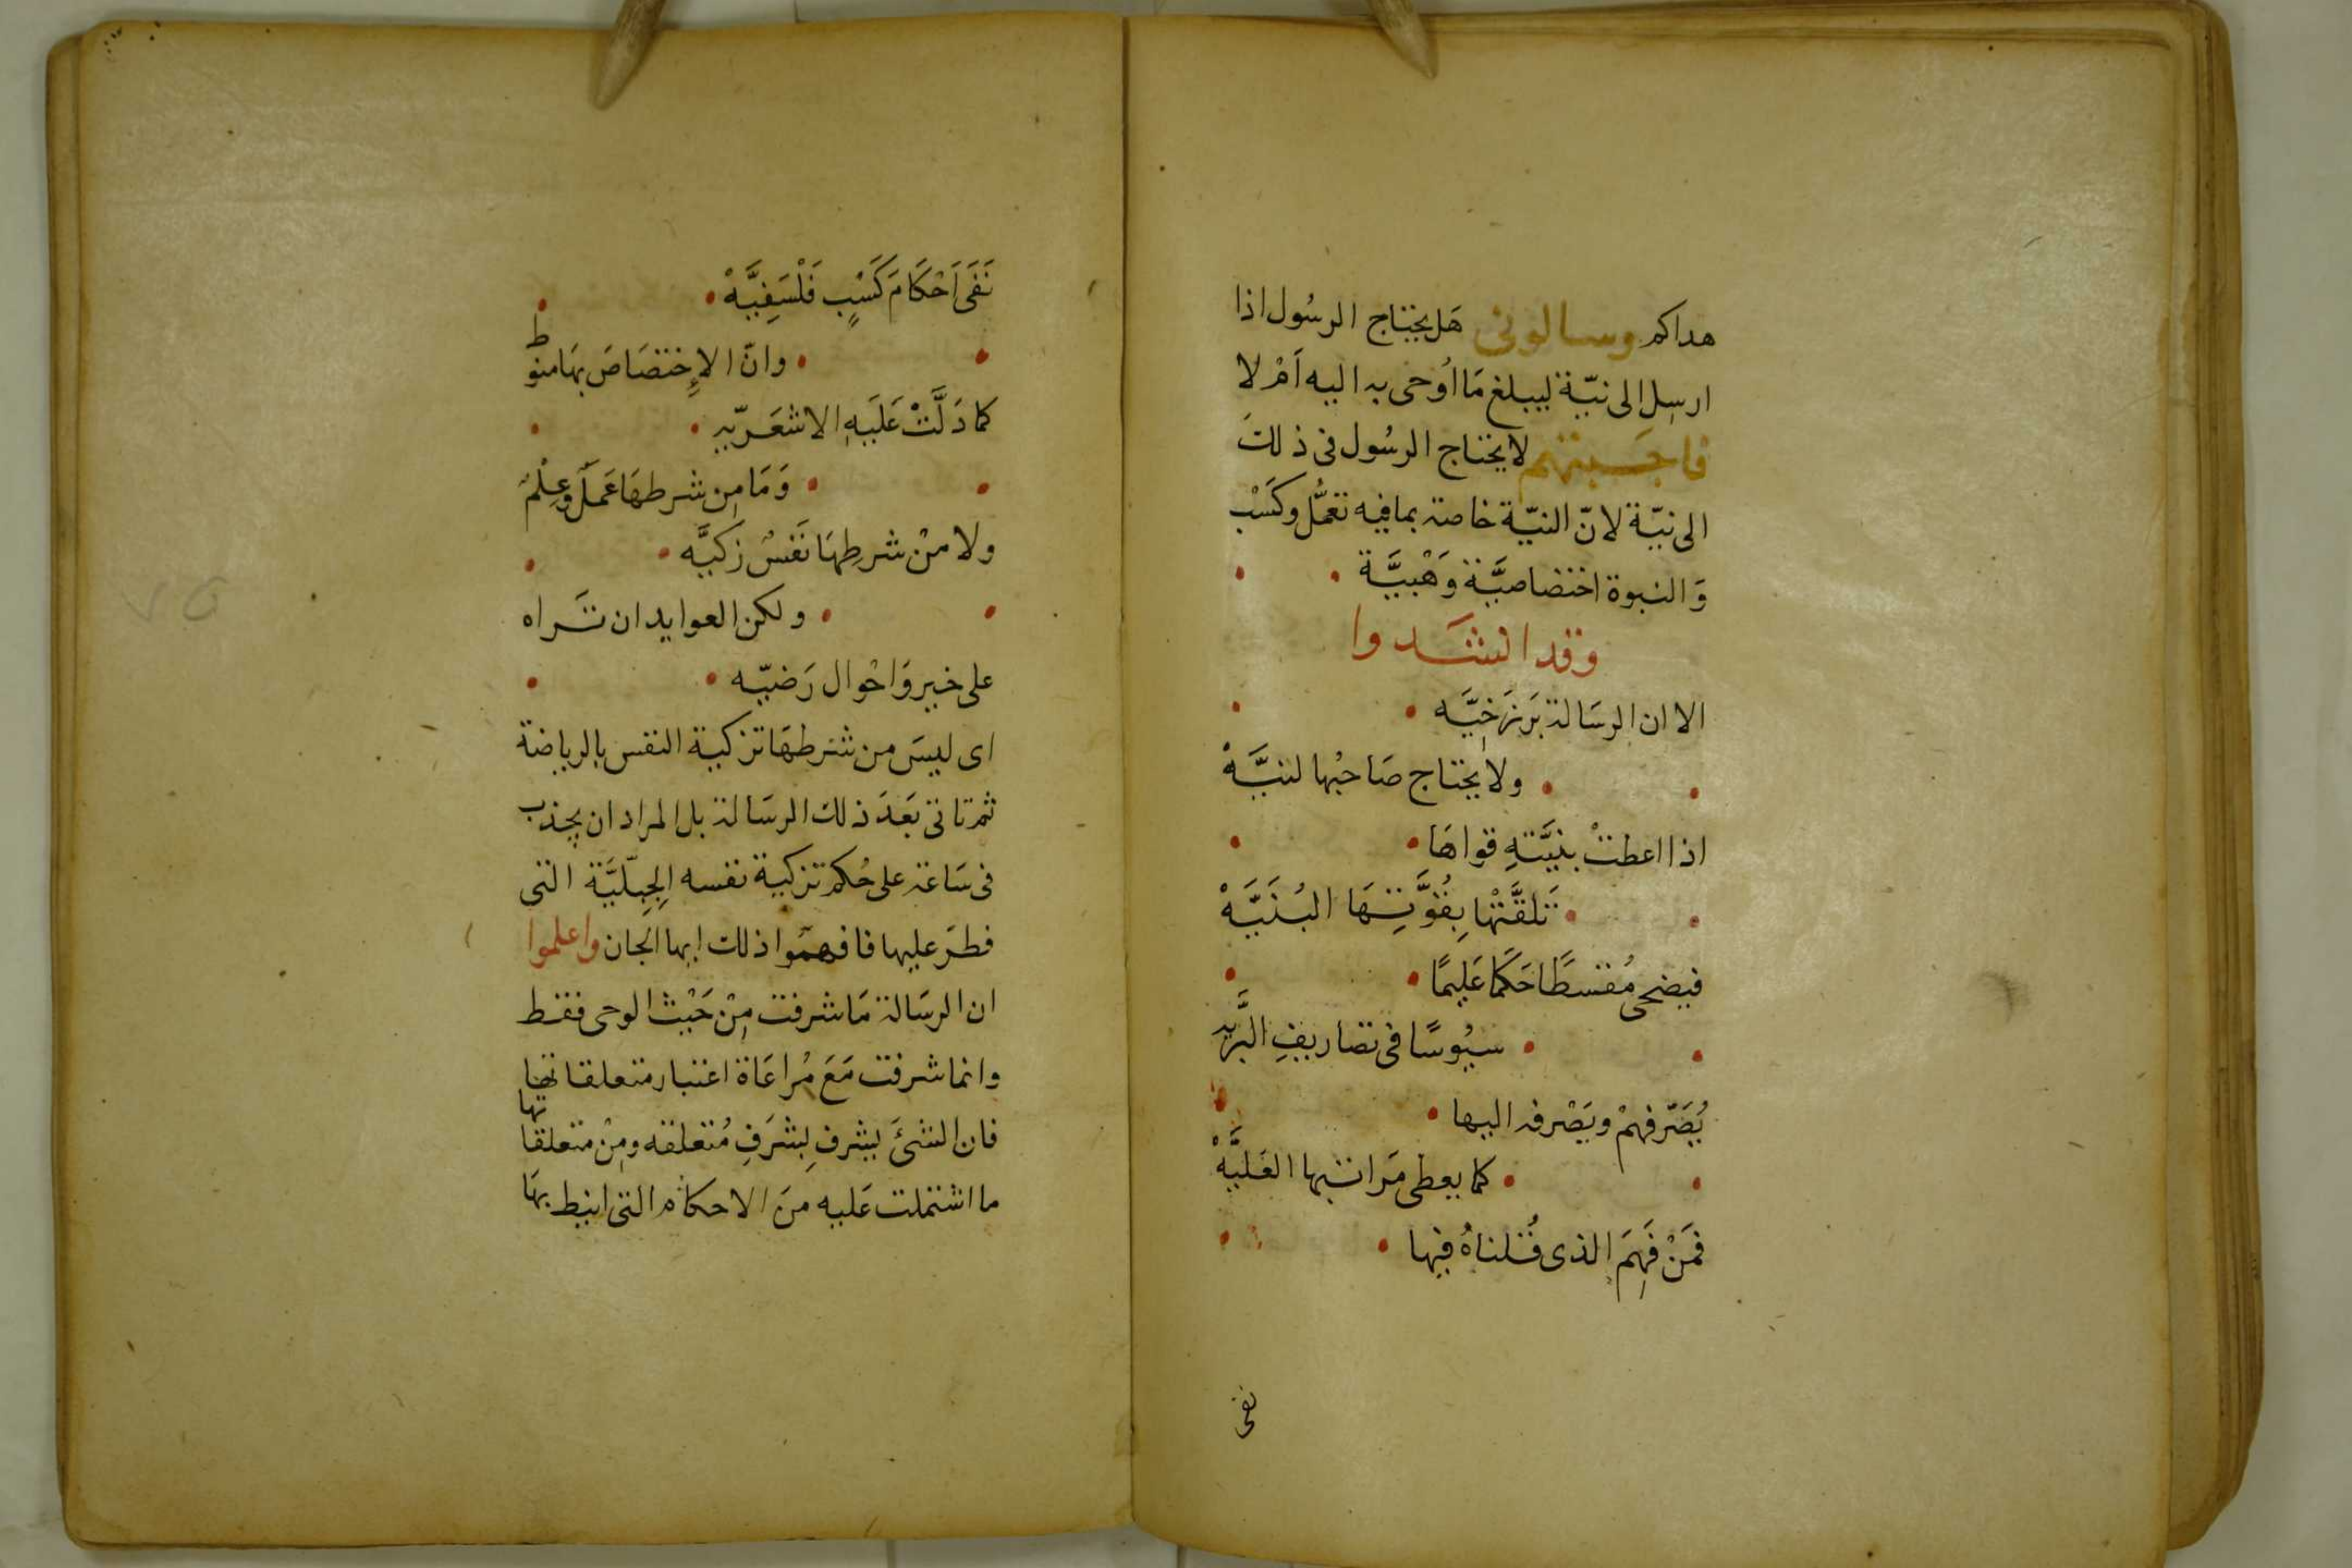 هداكم وسالونى هَل يحتاج الرسُول اذا
ارسِل الى نيّة ليبلغ مَا اُوحى به اليه اَمْ لا
فاجَبتهم لا يحتاج الرسُول فى ذلكَ
الى نيّة لانّ النيّة خاصة بما فيه تعمُّل وكَسْب
وَالنبوة اختصاصيَّة وَهْبيَّة
وقد انشَدوا
الا ان الرسَالة بَرزَخِيَّه
ولا يحتاج صَاحبُها لنيَّهْ
اذا اعطتْ بنيَّتهِ قواهَا
تَلقَّتْها بِقُوَّتِهَا البُنَيَّهْ
فيضحى مُقسطًا حَكَما عَليمًا
سيُوسًا فى تصاريفِ البَّريه
يُصَرّفهمْ ويَصْرفه اليها
كما يعطى مَراتبها العَليَّهْ
فمَنْ فَهِمَ الذى قُلناهُ فيها
نفى
نَفَى اَحْكَامَ كَسْبٍ فَلْسَفِيَّهْ
وانّ الاِختصَاصَ بهَا منوط
كما دَلَّتْ عَلَيهِ الاشعَريّه
وَمَا مِن شرطهَا عَملٌ وعِلْمٌ
ولا منْ شرطِهَا نَفسٌ زكيَّه
ولكن العوايد ان تَراه
على خير وَاحْوال رَضيّه
اى ليسَ من شرطهَا تزكية النفس بالرياضة
ثم تاتى بَعَدَ ذلك الرسَالة بل المراد ان يجذب
فى سَاعة على حُكم تزكية نفسه الجِبلّيَّة التى
فطرَ عليها فافهمُوا ذلك ايها الجان واعلموا
ان الرسَالة مَا شرفت مِنْ حَيْث الوحى فقط
وانما شرفت مَعَ مُراعَاة اعتبار متعلقاتها
فان الشئَ يشرفِ بشَرَفِ مُتعلقه ومِنْ متعلقاتها
ما اشتملت عَليه منَ الاحكام التى انيط بهَا